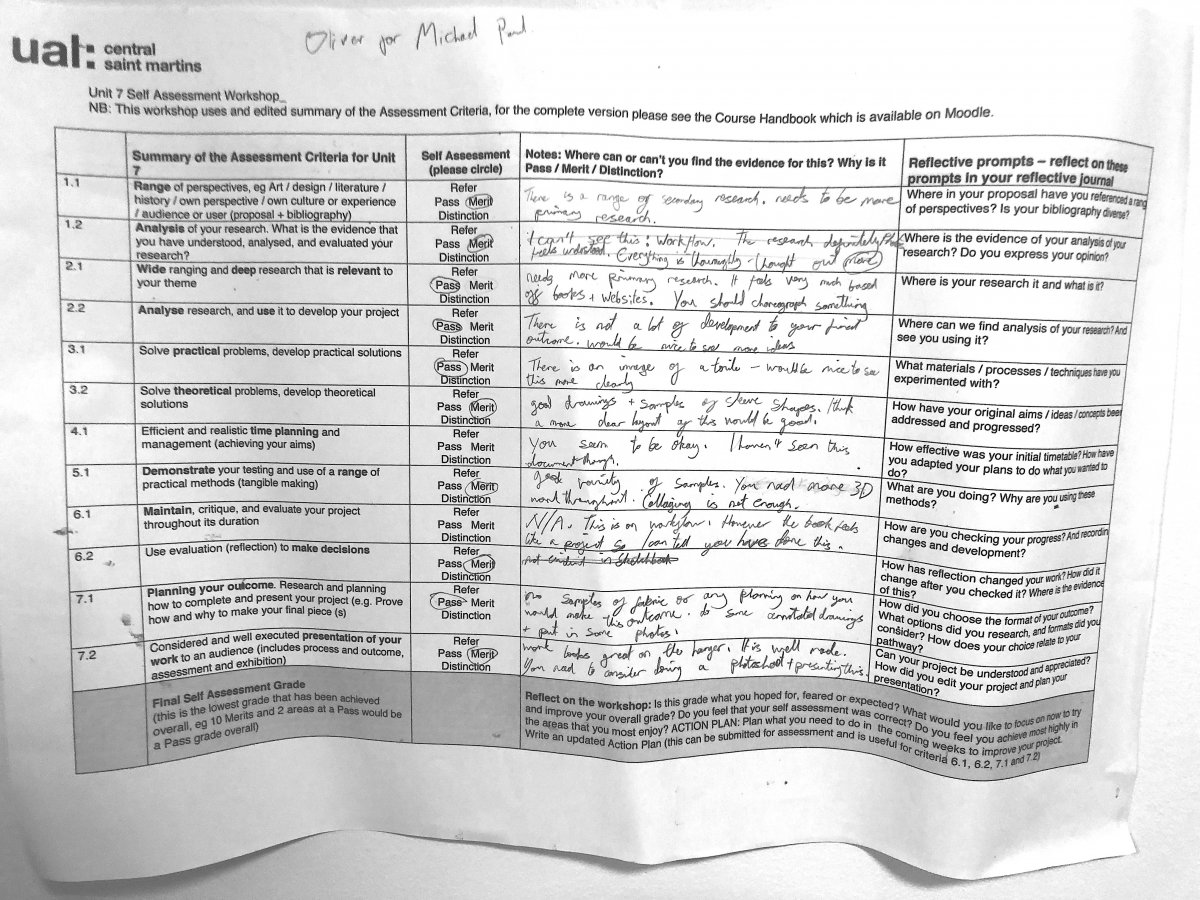 Oliver for Michael Paul.
ual: central
saint martins
Unit 7 Self Assessment Workshop_
NB: This workshop uses and edited summary of the Assessment Criteria, for the complete version please see the Course Handbook which is available on Moodle.
Summary of the Assessment Criteria for Unit
7
Self Assessment
(please circle)
Notes: Where can or can't you find the evidence for this? Why is it
Pass / Merit / Distinction?
Reflective prompts – reflect on these
prompts in your reflective journal
1.1
Range of perspectives, eg Art / design / literature /
history / own perspective / own culture or experience
/ audience or user (proposal + bibliography)
Refer
Pass Merit
Distinction
There is a range of secondary research. needs to be more
primary research.
Where in your proposal have you referenced a rang
of perspectives? Is your bibliography diverse?
1.2
Analysis of your research. What is the evidence that
you have understood, analysed, and evaluated your
research?
Refer
Pass Merit
Distinction
I can't see this: Workflow. The research definitely
feels understood. Everything is thouroughly thought out
Where is the evidence of your analysis of your
research? Do you express your opinion?
2.1
Wide ranging and deep research that is relevant to
your theme
Refer
Pass Merit
Distinction
needs more primary research. It feels very much based
of books + websites. You should choreograph something
Where is your research it and what is it?
2.2
Analyse research, and use it to develop your project
Refer
Pass Merit
Distinction
There is not a lot of development to your final
outcome. would be nice to see more ideas
Where can we find analysis of your research? And
see you using it?
3.1
Solve practical problems, develop practical solutions
Refer
Pass Merit
Distinction
There is an image of a toile – would be nice to see
this more clearly
What materials / processes / techniques have you
experimented with?
3.2
Solve theoretical problems, develop theoretical
solutions
Refer
Pass Merit
Distinction
good drawings + samples of sleeve shapes. I think
a more clear layout of this would be good.
How have your original aims / ideas / concepts beer
addressed and progressed?
4.1
Efficient and realistic time planning and
management (achieving your aims)
Refer
Pass Merit
Distinction
You seem to be okay. I haven't seen this
document though.
How effective was your initial timetable? How have
you adapted your plans to do what you wanted to
do?
5.1
Demonstrate your testing and use of a range of
practical methods (tangible making)
Refer
Pass Merit
Distinction
good variety of samples. You need more 3D
work throughout. Collaging is not enough.
What are you doing? Why are you using these
methods?
6.1
Maintain, critique, and evaluate your project
throughout its duration
Refer
Pass Merit
Distinction
N/A. This is on workflow. However the book feels
like a project so I can tell you have done this.
How are you checking your progress? And recordin
changes and development?
6.2
Use evaluation (reflection) to make decisions
Refer
Pass Merit
Distinction
not evident in sketchbook
How has reflection changed your work? How did it
change after you checked it? Where is the evidence
of this?
7.1
Planning your outcome. Research and planning
how to complete and present your project (e.g. Prove
how and why to make your final piece (s)
Refer
Pass Merit
Distinction
no samples of fabric or any planning on how you
would make this outcome. do some annotated drawings
+ put in some photos.
How did you choose the format of your outcome?
What options did you research, and formats did you
consider? How does your choice relate to your
pathway?
7.2
Considered and well executed presentation of your
work to an audience (includes process and outcome,
assessment and exhibition)
Refer
Pass Merit
Distinction
work looks great on the hanger. It is well made.
You need to consider doing a photoshoot + presenting this.
Can your project be understood and appreciated?
How did you edit your project and plan your
presentation?
Final Self Assessment Grade
(this is the lowest grade that has been achieved
overall, eg 10 Merits and 2 areas at a Pass would be
a Pass grade overall)
Reflect on the workshop: Is this grade what you hoped for, feared or expected? What would you like to focus on now to try
and improve your overall grade? Do you feel that your self assessment was correct? Do you feel you achieve most highly in
the areas that you most enjoy? ACTION PLAN: Plan what you need to do in the coming weeks to improve your project.
Write an updated Action Plan (this can be submitted for assessment and is useful for criteria 6.1, 6.2, 7.1 and 7.2)